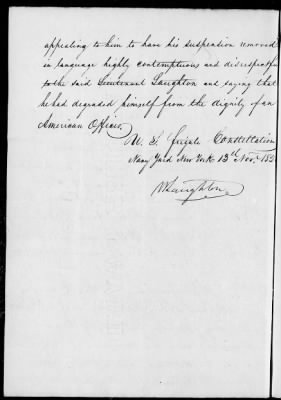 appealing to him to have his suspension removed
in language highly contemptuous and disrespectful
to the said Lieutenant Laughton and saying that
he had degraded himself from the dignity of an
American Officer.
U. S. Frigate Constellation
Navy Yard New York 13th Nov. 183
Laughton